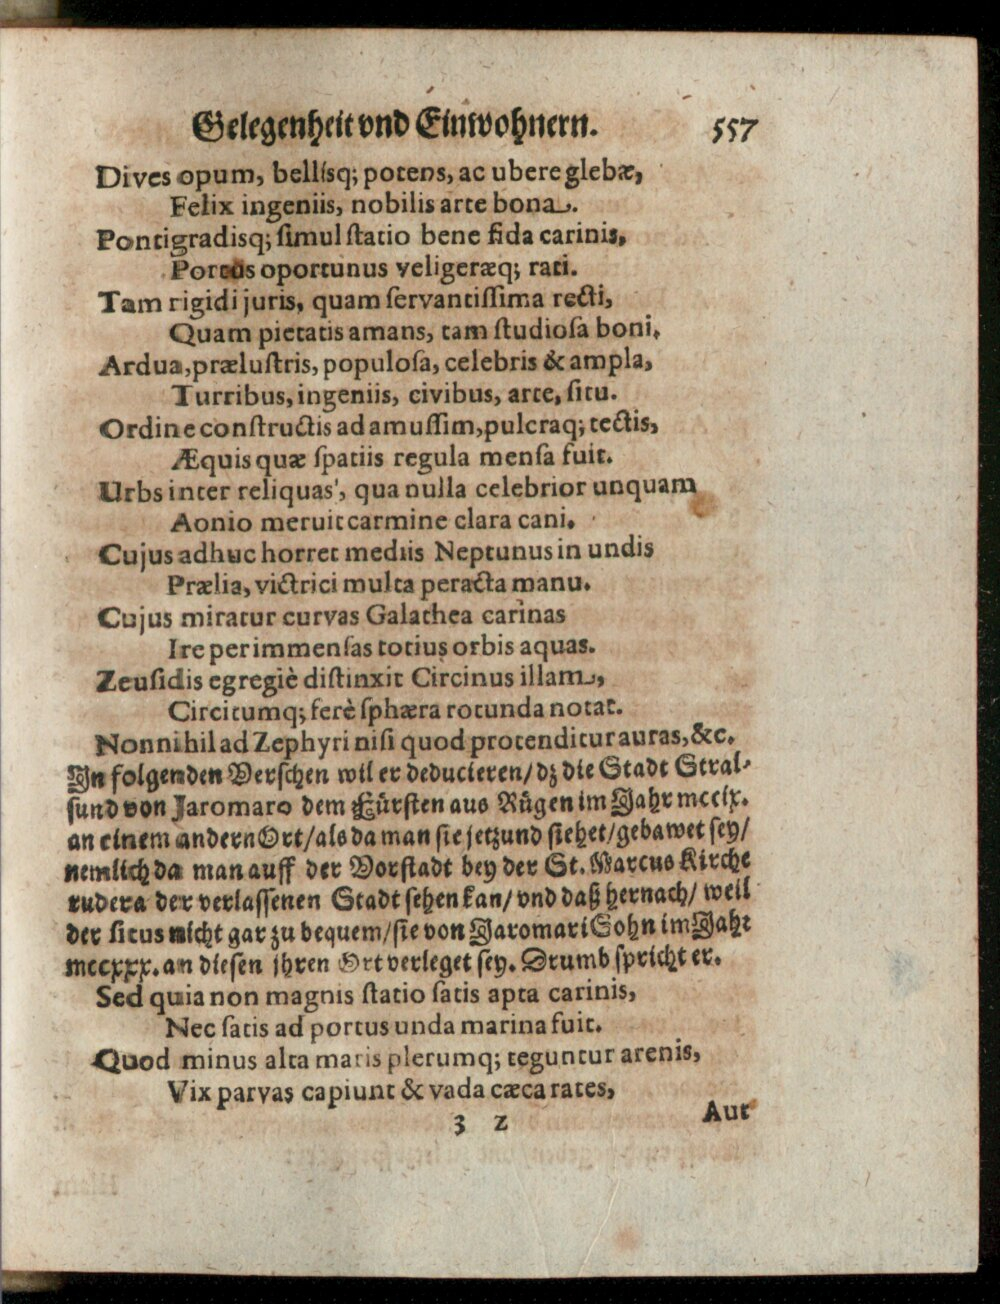 Gelegenheit vnd Einwohnern. 557
Dives opum, bellisq; potens, ac ubere glebæ,
Felix ingeniis, nobilis arte bona.
Pontigradisq; ſimul ſtatio bene fida carinis,
Portus oportunus veligeræq; rati.
Tam rigidi juris, quam ſervantiſſima recti,
Quam pietatis amans, tam ſtudioſa boni,
Ardua, præluſtris, populoſa, celebris & ampla,
Turribus, ingeniis, civibus, arte, ſitu.
Ordine conſtructis ad amuſſim, pulcraq; tectis,
Æquis quæ ſpatiis regula menſa fuit.
Urbs inter reliquas', qua nulla celebrior unquam
Aonio meruit carmine clara cani.
Cujus adhuc horret mediis Neptunus in undis
Prælia, victrici multa peracta manu.
Cujus miratur curvas Galathea carinas
Ire per immenſas totius orbis aquas.
Zeuſidis egregiè diſtinxit Circinus illam,
Circitumq; ferè ſphæra rotunda notat.
Nonnihil ad Zephyri niſi quod protenditur auras, &c.
Jn folgenden Verſchen wil er deducieren/ dz die Stadt Stral-
ſund von Jaromaro dem Fürſten aus Rügen im Jahr mccix.
an einem andern Ort/ als da man ſie jetzund ſiehet/ gebawet ſey/
nemlich da man auff der Vorſtadt bey der St. Marcus Kirche
rudera der verlaſſenen Stadt ſehen kan/ vnd daß hernach/ weil
der ſitus nicht gar zu bequem/ ſie von Jaromari Sohn im Jahr
mccxxx. an dieſen jhren Ort verleget ſey. Drumb ſpricht er.
Sed quia non magnis ſtatio ſatis apta carinis,
Nec ſatis ad portus unda marina fuit.
Quod minus alta maris plerumq; teguntur arenis,
Vix parvas capiunt & vada cæca rates,
3 Z Aut